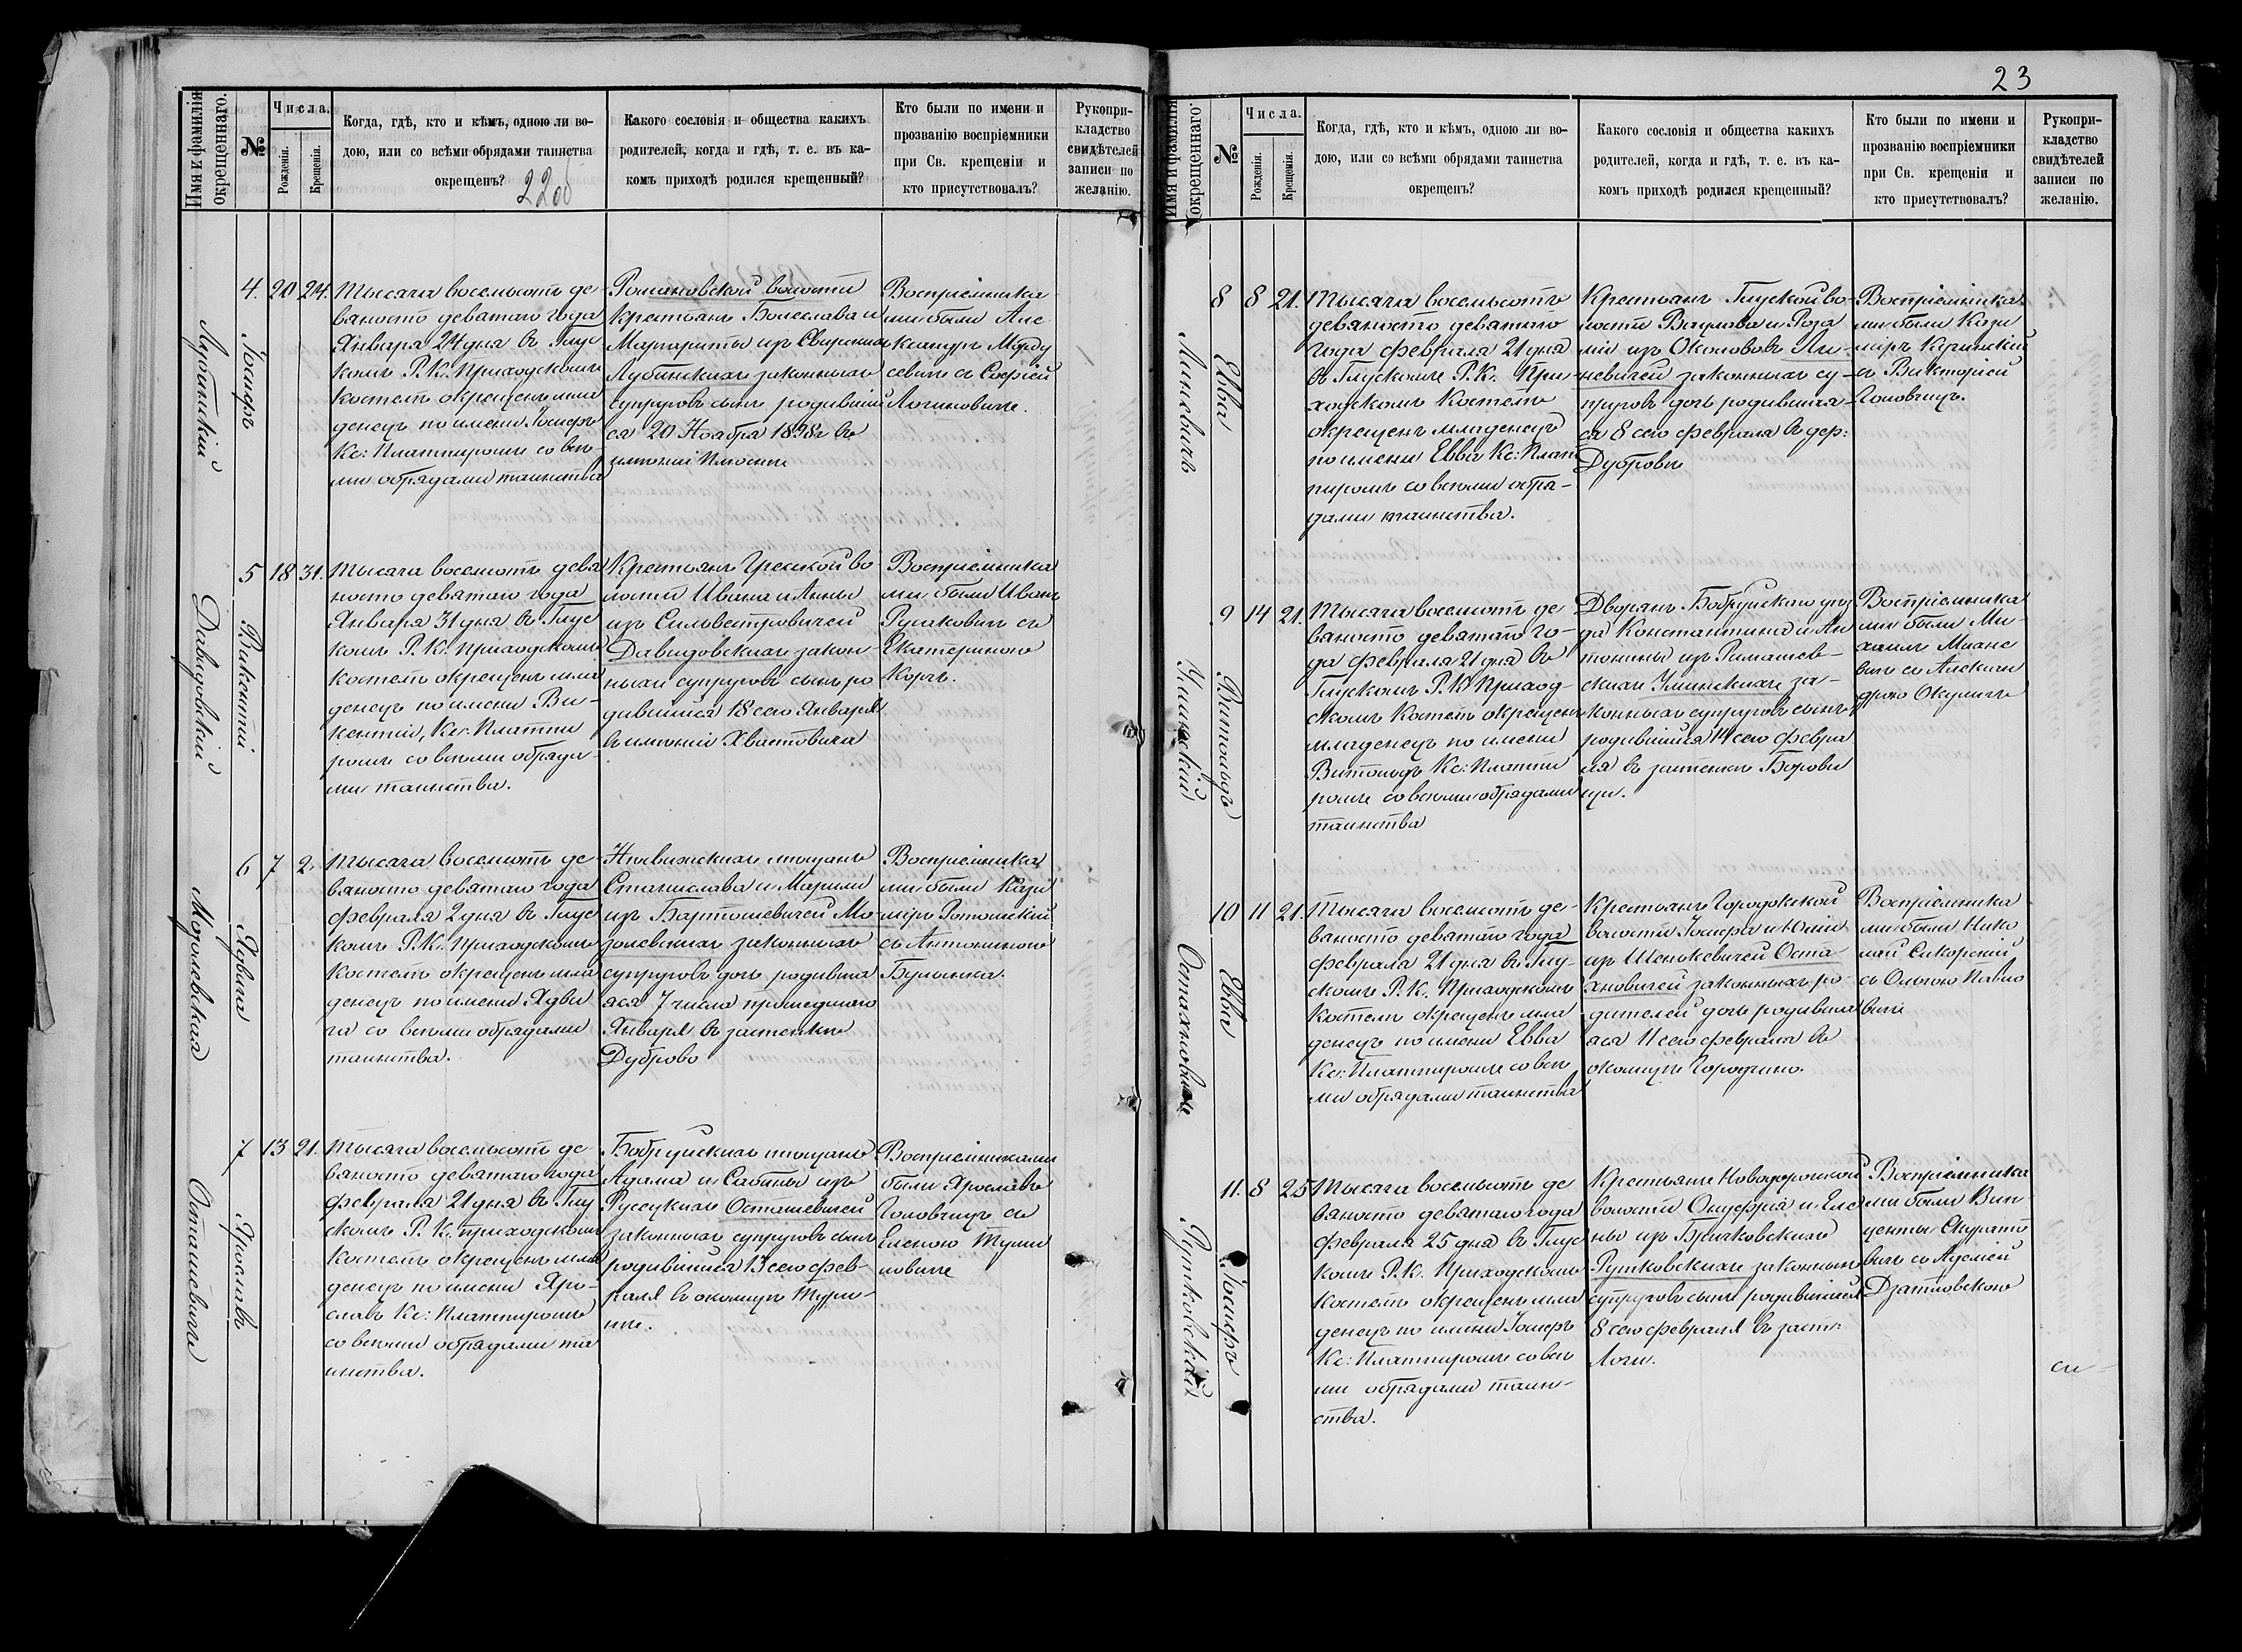 Имя и фамилія окрещеннаго.
№
Числа.
Рожденія.
Крещенія.
Когда, гдѣ, кто и кѣмъ, одною ли во-
дою, или со всѣми обрядами таинства
окрещенъ?
22об
Какого сословія и общества какихъ
родителей, когда и гдѣ, т. е. въ ка-
комъ приходѣ родился крещенный?
Кто были по имени и
прозванію воспріемники
при Св. крещеніи и
кто присутствовалъ?
Рукопри-
кладство
свидѣтелей
записи по
желанію.
Іосифъ
Лубинскій
4. 20 24.
Тысяча восемьсотъ де-
вяносто девятаго года
Января 24 дня въ Глус
комъ Р. К. Приходскомъ
костелѣ окрещенъ мла
денецъ по имени Іосифъ
Кс: Платпиромъ со все-
ми обрядами таинства
Романовской волости
Крестьянъ Болеслава и
Маргариты изъ
Лубинскихъ законныхъ
супруговъ сынъ родившій
ся 20 Ноября 1898г въ
имѣніи Плюсни
Воспріемника
ми были Але
ксандръ Мору
севичъ съ Софіей
Викентій
Давидовскій
5 18 31.
Тысяча восемсотъ девя
носто девятаго года
Января 31 дня въ Глус
комъ Р. К. Приходскомъ
костелѣ окрещенъ мла
денецъ по имени Ви-
кентій, Кс: Платпи
ромъ со всѣми обряда-
ми таинства.
Крестьянъ Греской во
лости Ивана и Анны
изъ Сильвестровичей
Давидовскихъ закон-
ныхъ супруговъ сынъ ро
дившійся 18 сего Января
въ имѣніи Хвастовичахъ
Воспріемника
ми были Иванъ
Русаковичъ съ
Екатериною
Корчъ.
Ядвига
Мозолевская
6 7 2.
Тысяча восемсотъ де-
вяносто девятаго года
февраля 2 дня въ Глус
комъ Р. К. Приходскомъ
костелѣ окрещенъ мла
денецъ по имени Ядви
га со всѣми обрядами
таинства.
Несвижскихъ мѣщанъ
Станислава и Маріи
изъ Бартошевичей Мо-
золевскихъ законныхъ
супруговъ дочь родивша
яся 7 числа прошедшаго
Января въ застенкѣ
Дуброво
Воспріемника
ми были Кази
міръ Ротомскій
съ Антониною
Булынка.
Ярославъ
Осташевичъ
7 13 21.
Тысяча восемьсотъ де-
вяносто девятаго года
февраля 21 дня въ Глу
скомъ Р. К. приходскомъ
костелѣ окрещенъ мла
денецъ по имени Яро-
славъ Кс: Платпиромъ
со всѣми обрядами та
инства.
Бобруйскихъ мѣщанъ
Адама и Сабины изъ
Руссукихъ Осташевичей
законныхъ супруговъ сынъ
родившійся 13 сего фев-
раля въ околицѣ Тури-
не.
Воспріемниками
были Ярославъ
Головчицъ съ
Еленою Тума
новичъ
23
Имя и фамилія окрещеннаго.
№
Числа.
Рожденія.
Крещенія.
Когда, гдѣ, кто и кѣмъ, одною ли во-
дою, или со всѣми обрядами таинства
окрещенъ?
Какого сословія и общества какихъ
родителей, когда и гдѣ, т. е. въ ка-
комъ приходѣ родился крещенный?
Кто были по имени и
прозванію воспріемники
при Св. крещеніи и
кто присутствовалъ?
Рукопри-
кладство
свидѣтелей
записи по
желанію.
Евва
Линевичъ
8 8 21.
Тысяча восемьсотъ
девяносто девятаго
года февраля 21 дня
въ Глускомъ Р. К. При-
ходскомъ Костелѣ
окрещенъ младенецъ
по имени Евва Кс: Плат
пиромъ со всѣми обря-
дами таинства.
Крестьянъ Глуской во-
лости Вацлава и Роза
ліи изъ Околововъ Ли-
невичей законныхъ су-
пруговъ дочь родившая-
ся 8 сего февраля въ дер:
Дубровѣ
Воспріемника
ми были Кази
міръ Качинскій
съ Викторіей
Головчицъ.
Витольдъ
Уминскій
9 14 21.
Тысяча восемсотъ де-
вяносто девятаго го-
да февраля 21 дня въ
Глускомъ Р. К. Приход-
скомъ Костелѣ окрещенъ
младенецъ по имени
Витольдъ Кс: Платпи
ромъ со всѣми обрядами
таинства
Дворянъ Бобруйскаго уѣз
да Константина и Ан
тонины изъ Римашев-
скихъ Уминскихъ за-
конныхъ супруговъ сынъ
родившійся 14 сего февра
ля въ застенкѣ Борови
цы.
Воспріемника
ми были Ми-
хаилъ
вичъ съ Алексан
дрою Окуличъ
Евва
Остахновичъ
10 11 21.
Тысяча восемсотъ де-
вяносто девятаго года
февраля 21 дня въ Глу-
скомъ Р. К. Приходскомъ
Костелѣ окрещенъ мла
денецъ по имени Евва
Кс: Платпиромъ со все
ми обрядами таинства
Крестьянъ Городокской
волости Іосифа и Юліи
изъ Шенькевичей Оста
хновичей законныхъ ро-
дителей дочь родивша
яся 11 сего февраля въ
околицѣ Городчино.
Воспріемника
ми были Нико
лай Сикорскій
съ Ольгою Павло
вичъ
Іосифъ
Рутковскій
11. 8 25
Тысяча восемьсотъ де
вяносто девятаго года
Февраля 25 дня въ Глус
комъ Р. К. Приходскомъ
Костелѣ окрещенъ мла
денецъ по имени Іосифъ
Кс: Платпиромъ со все
ми обрядами таин-
ства.
Крестьянъ Новодорожской
волости Онуфрія и Еле
ны изъ Бричковскихъ
Рутковскихъ законныхъ
супруговъ сынъ родившійся
8 сего февраля въ заст:
Логи.
Воспріемника
ми были Вин-
центы Скурато
вичъ съ Аделей
Дзятловскою